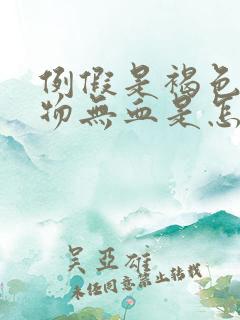 例假是褐色
物無血是怎
吴亞雄
未任同意禁止转载